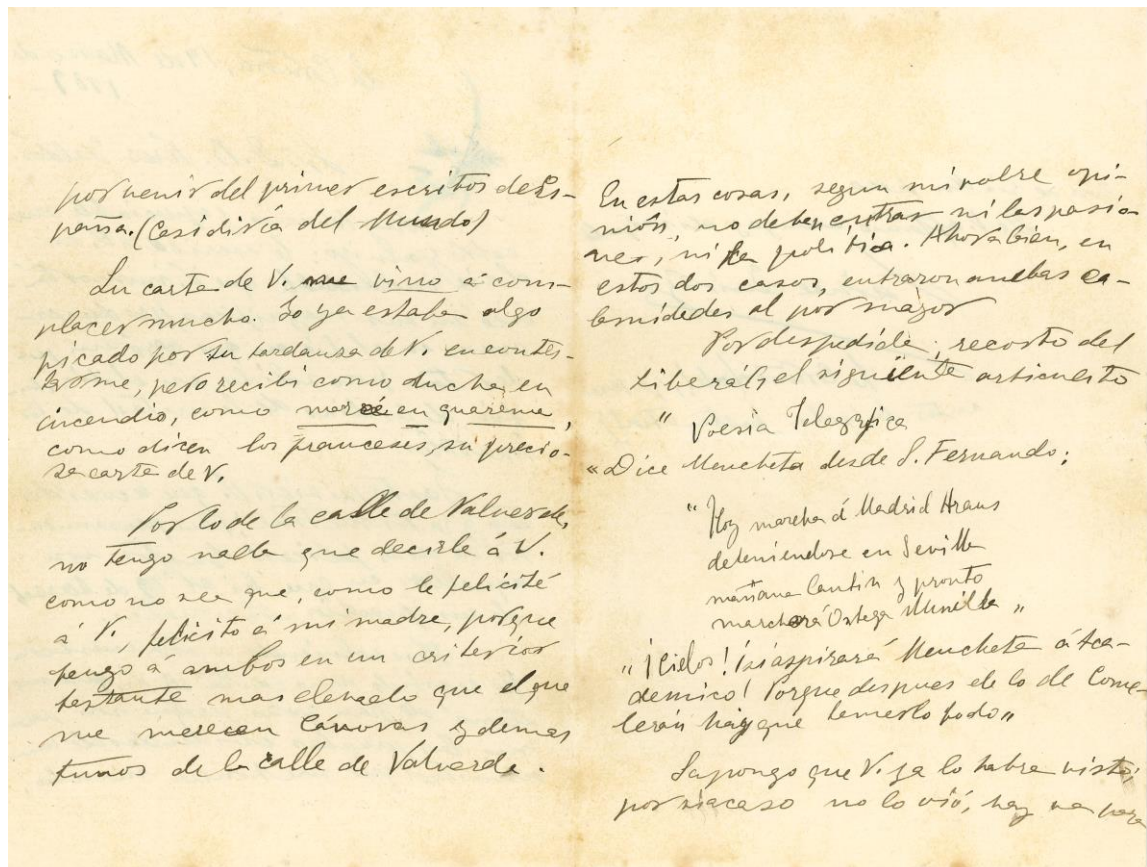 por venir del primer escritor de Es-
paña. (Casi diría del Mundo)
Su carta de V. me vino á com-
placer mucho. Yo ya estaba algo
picado por su tardanza de V. en contes-
tarme, pero recibí como ducha en
incendio, como marée en quarème,
como dicen los franceses, su precio-
sa carta de V.
Por lo de la calle de Valverde,
no tengo nada que decirle á V.
como no sea que, como le felicité
á V., felicito á mi madre, porque
tengo á ambos en un criterior
bastante mas elevado que el que
me merecen Cánovas y demas
tunos de la calle de Valverde.
En estas cosas, segun mi pobre opi-
nión, no deben entrar ni las pasio-
nes, ni la política. Ahora bien, en
estos dos casos, entraron ambas ca-
lamidades al por mayor
Por despedida, recorto del
Liberal, el siguiente articuesto
"Poesia Telegrafica
"Dice Mencheta desde S. Fernando:
"Hoy marcha á Madrid Araus
deteniendose en Sevilla
mañana Cantin y pronto
marchará Ortega Munilla"
"¡Cielos! ¡si aspirará Mencheta á Aca-
demico! Porque despues de lo de Come-
lerán hay que temerlo todo"
Supongo que V. ya lo habra visto;
por si acaso no lo vió, hay va para